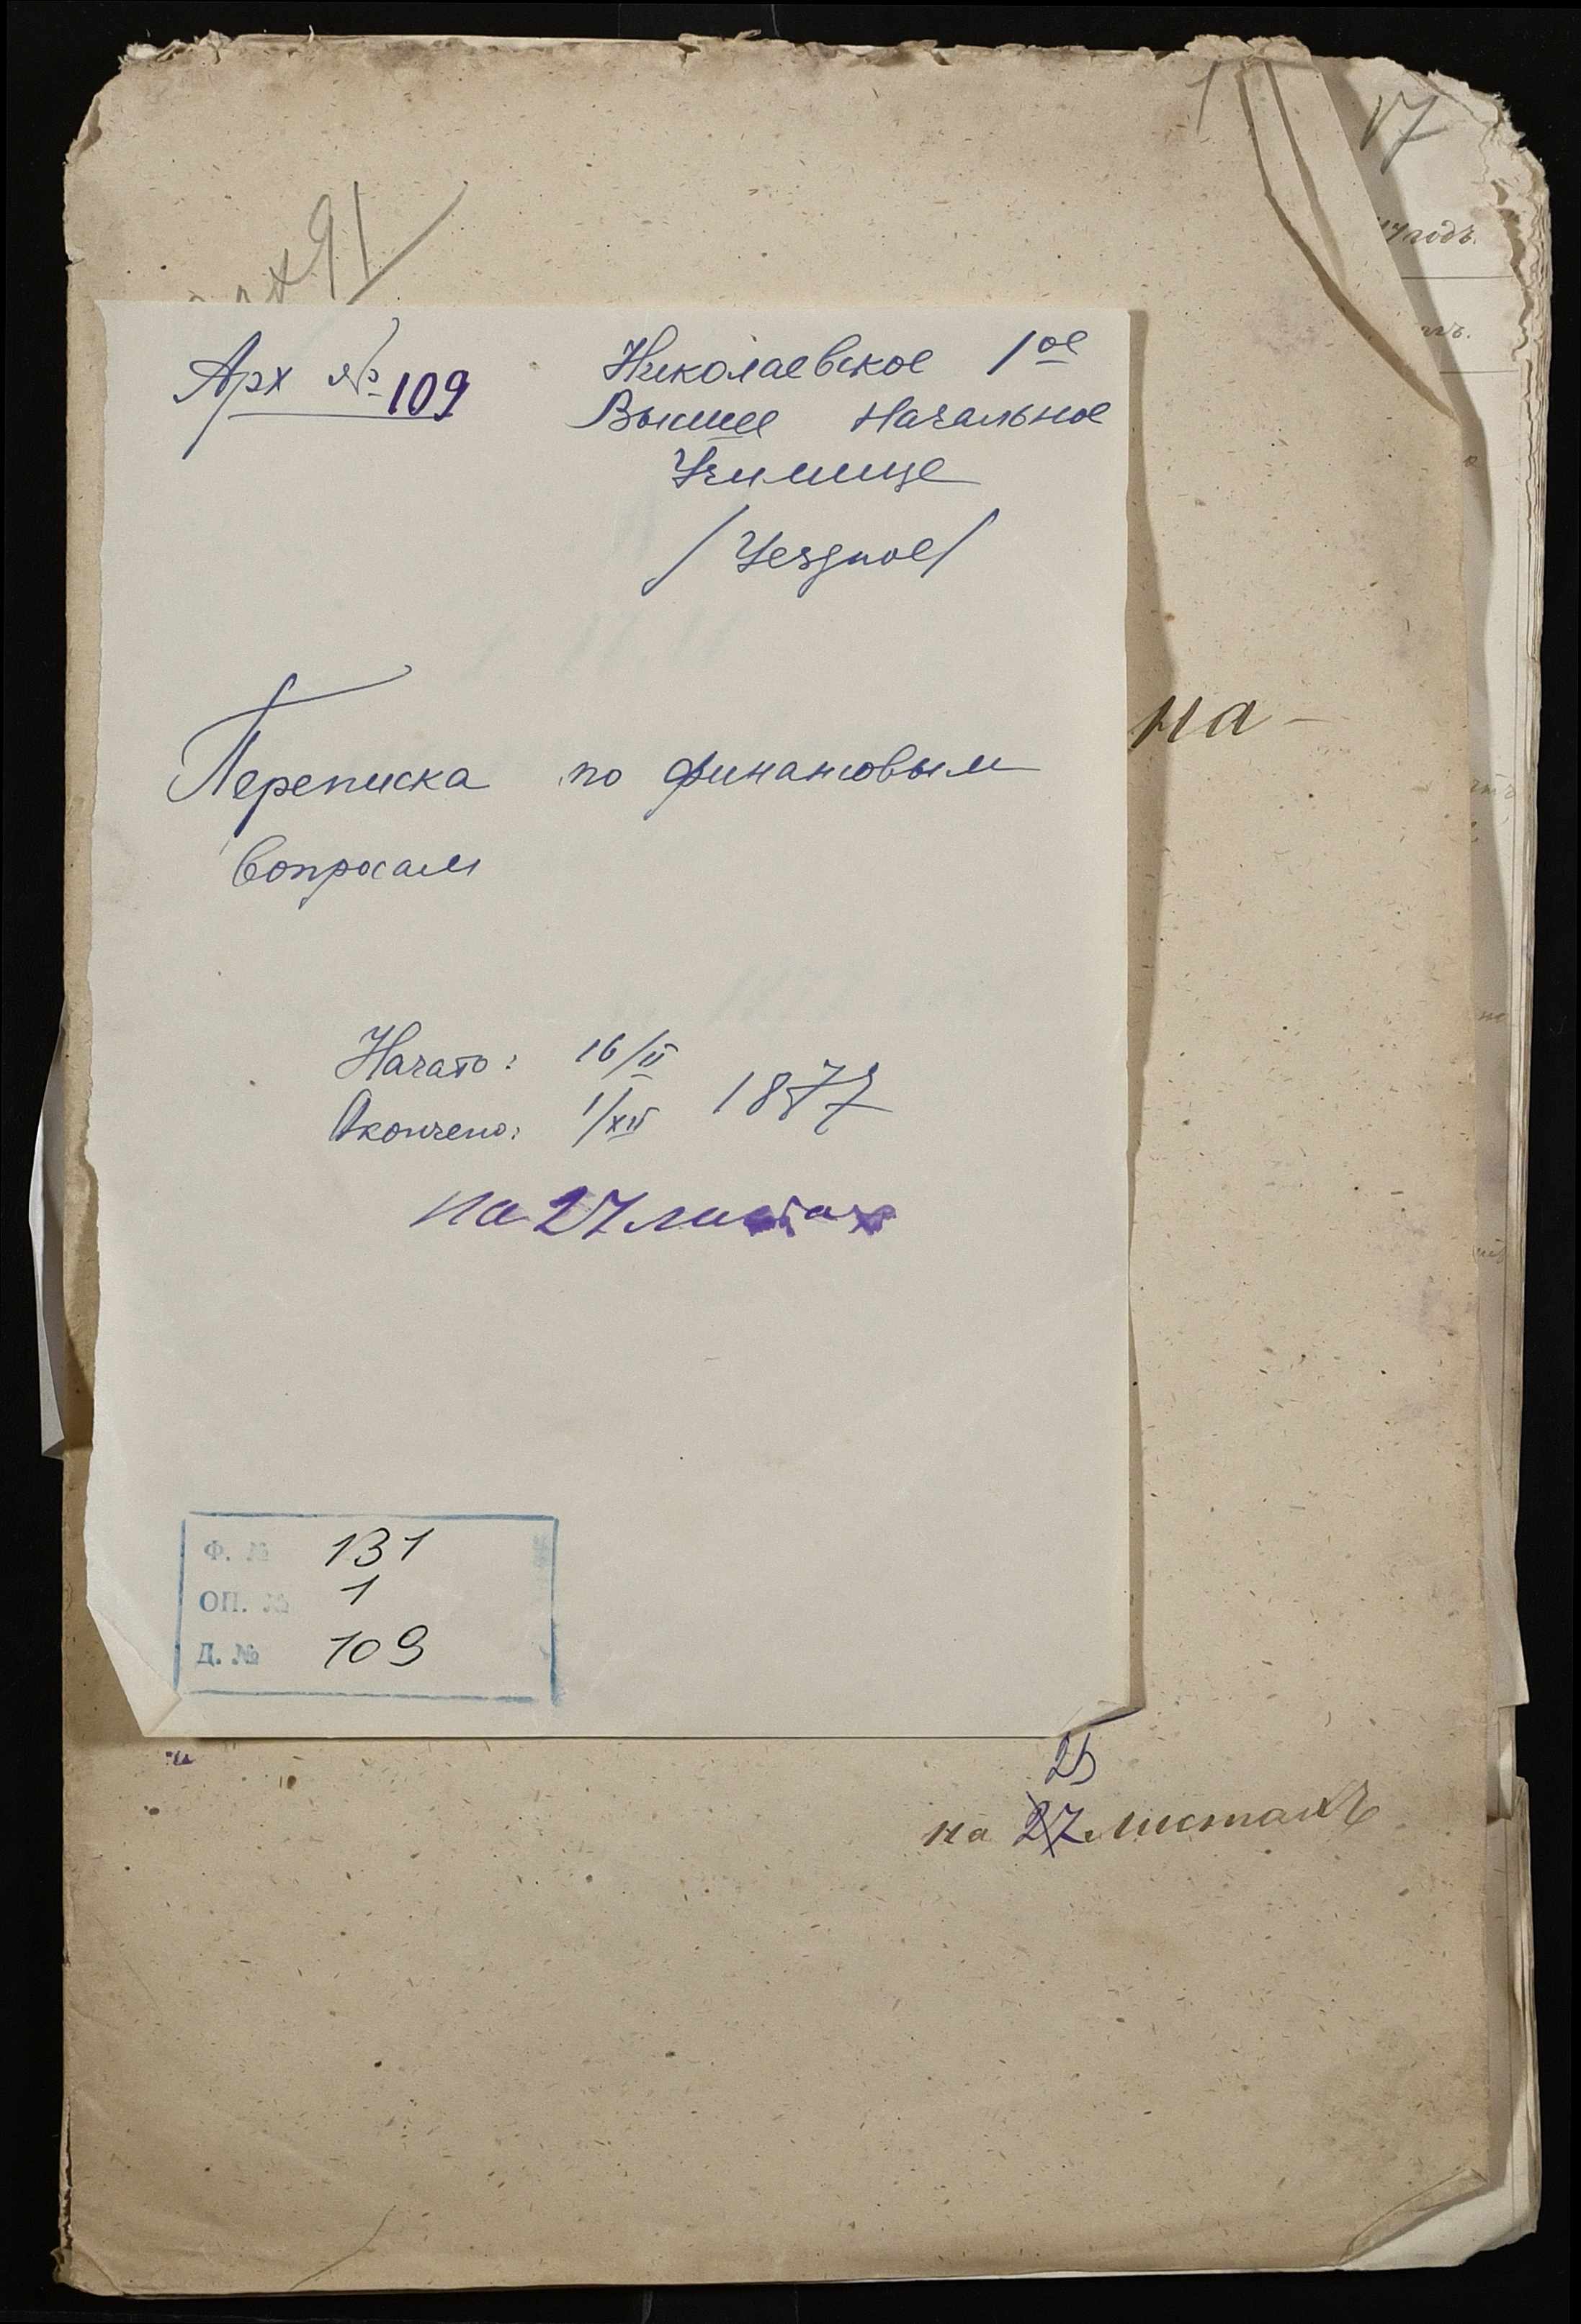 1
17
91
Арх № 109
Николаевское 1ое
Высшее Начальное
Училище
/Уездное/
на-
Переписка по финансовым
вопросам
Начато: 16/II
Окончено: 1/XII 1877
на 27 листах
Ф. № 131
ОП. № 1
Д. № 109
25
на 27 листахъ